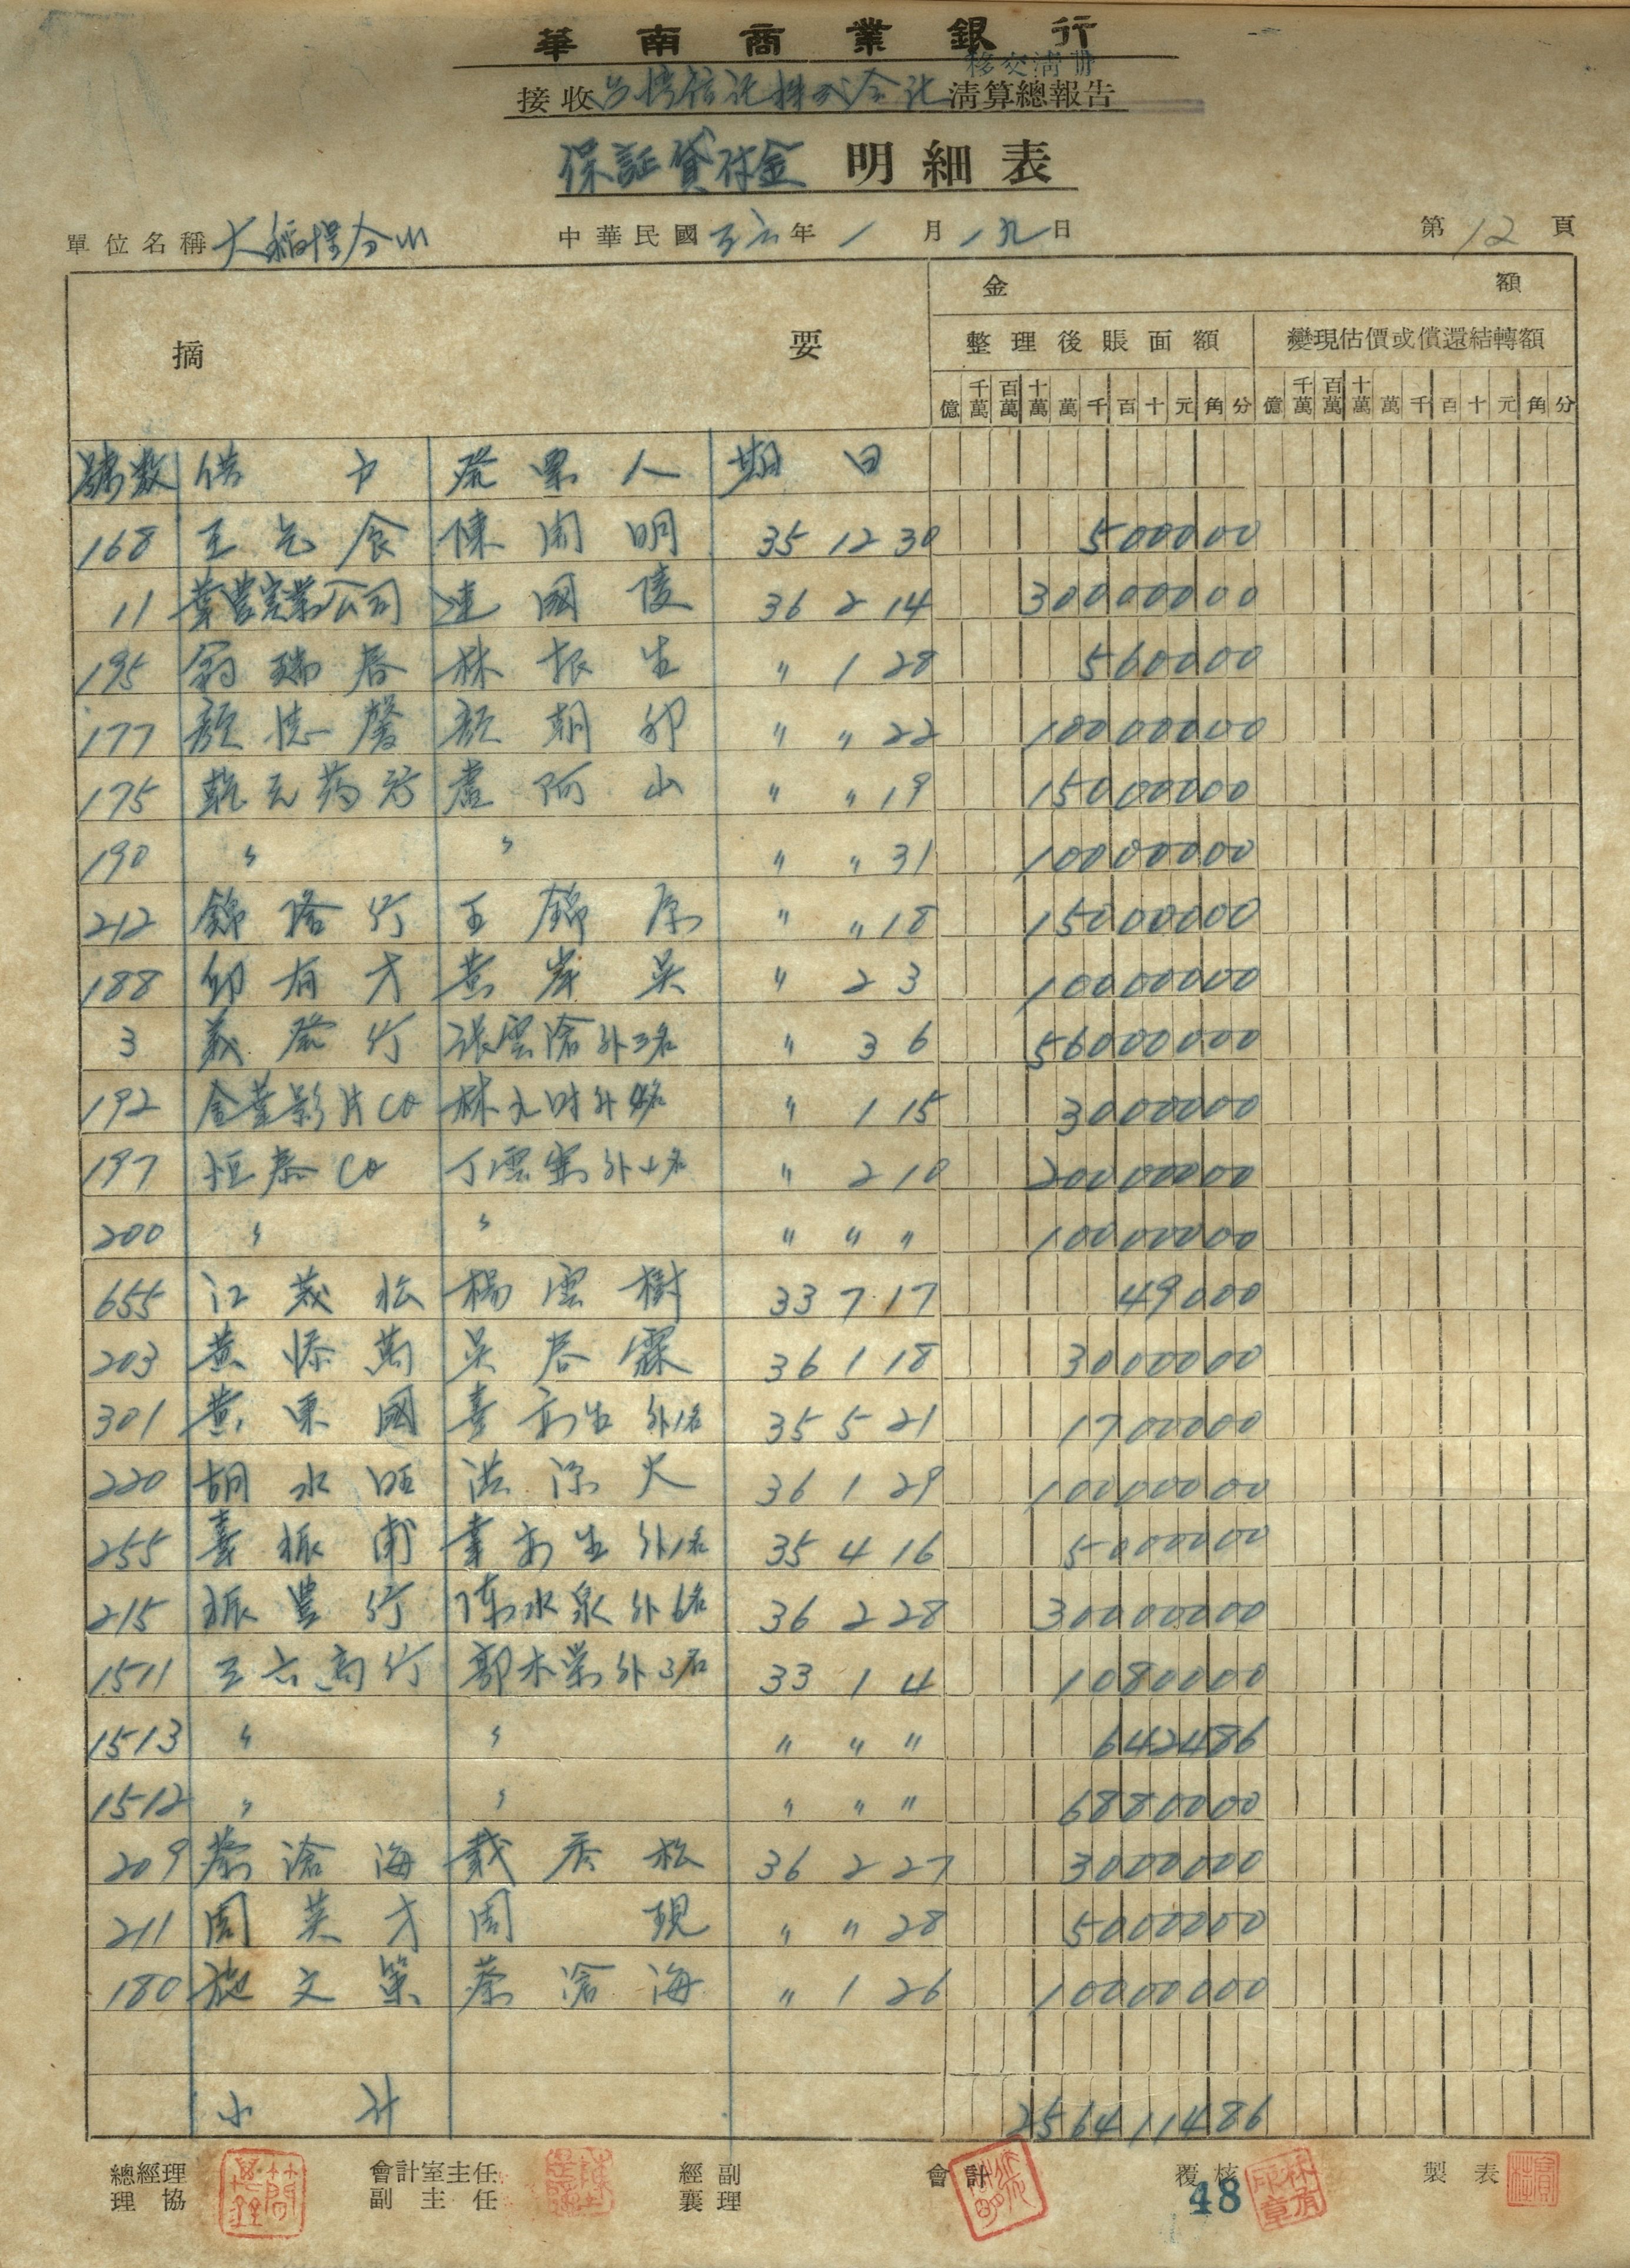 華南商業銀行
移交清冊
接收台灣信託株式会社清算總報告
保証貸付金 明細表
單位名稱 大稻埕分 中華民國三六年1月19日 第12頁
摘要 金額
整理後賬面額 變現估價或償還結轉額
億 千萬 百萬 十萬 萬 千 百 十 元 角 分 億 千萬 百萬 十萬 萬 千 百 十 元 角 分
號数 借方 発票人 期日
168 王乞食 陳開明 35 12 30 500000
11 華農実業公司 連國 36 2 14 30000000
195 翁瑞春 林振生 〃 1 28 560000
177 顏德馨 顏朝卯 〃 〃 22 10000000
175 乾元药行 盧阿山 〃 〃 19 15000000
190 〃 〃 〃 〃 31 10000000
212 錦 行 王錦 〃 〃 18 15000000
188 邱有才 黃岸吳 〃 2 3 10000000
3 義発行 張雲滄外3名 〃 3 6 56000000
192 金華影片Co 林 外 名 〃 1 15 3000000
197 恒泰Co 丁雲 外4名 〃 2 10 20000000
200 〃 〃 〃 〃 〃 10000000
655 江茂松 楊雲樹 33 7 17 49000
203 黃添萬 吳春霖 36 1 18 3000000
301 黃東國 外1名 35 5 21 1700000
220 胡水旺 洪添火 36 1 29 10000000
255 振甫 外1名 35 4 16 5000000
215 振豊行 陳水泉外6名 36 2 28 30000000
1511 三六商行 郭木 外3名 33 1 4 1080000
1513 〃 〃 〃 〃 〃 642486
1512 〃 〃 〃 〃 〃 6880000
209 蔡滄海 戴秀松 36 2 27 3000000
211 周英才 周現 〃 〃 28 5000000
180 施文策 蔡滄海 〃 1 26 10000000
小計 256411486
總經理 會計室主任 經副 會計 覆核 製表
理協 副主任 襄理
48